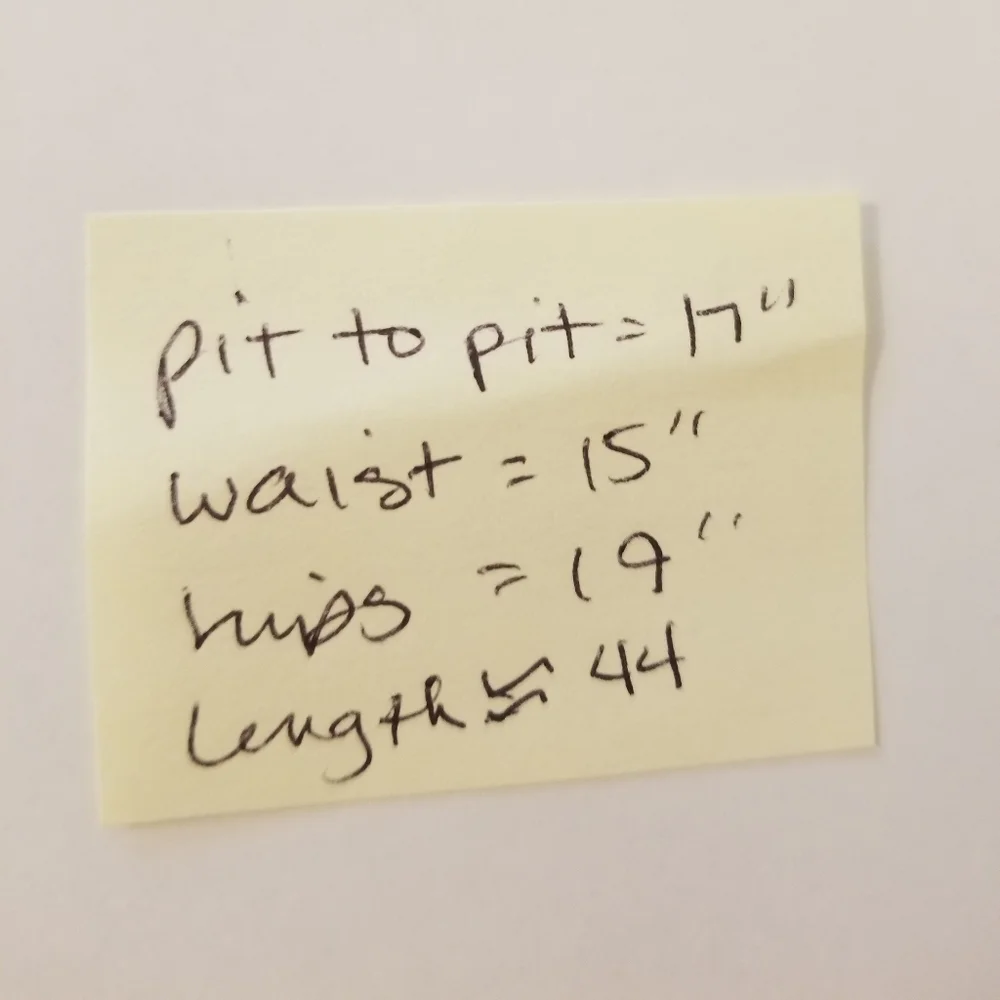 pit to pit = 17"
waist = 15"
hips = 19"
length ≈ 44